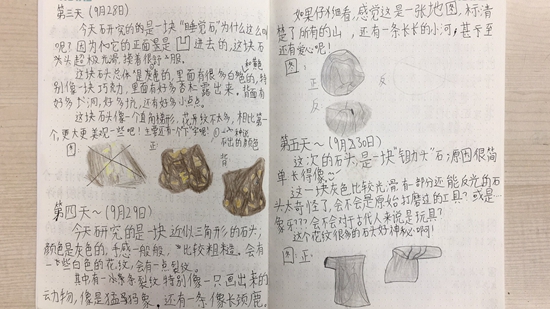 第三天(9月28日)
今天研究的的是一块“睡觉石”为什么这么
呢?因为他的正面竟是凹进去的,这块石
头超极光滑,摸着很舒服。
这块石头总体是灰色的,里面有很多白色的,特
别像一块巧克力,里面有好多杏仁露出来。背面有
好多个洞,好多坑,还有好多小点。
这块石头像一个直角梯形,花纹不太多,相比第一
个,更大更美观一些吧!主要还有一个
图: 正: 背
第四天~(9月29日)
今天研究的是一块近似三角形的石头;
颜色是灰色的,手感一般般,比较粗糙。会有
一些白色的花纹,会有一点裂纹。
其中有一条裂纹特别像一只画出来的
动物,像是猛犸象。还有一条像长颈鹿。
如果仔细看,感觉这是一张地图,标清
楚了所有的山,还有一条长长的小河,甚至
还有爱心呢!
图: 正
反 反
第五天~(9月30日)
这次的石头是一块“钼力头”石;原因很简
单长得像
这一块灰色比较光滑,有一部分还能反光的石
头太奇怪了,会不会是原始打磨过的工具?或是...
象牙???会不会对于古代人来说是玩具?
这个花纹很多的石头好神秘啊!
图:正: